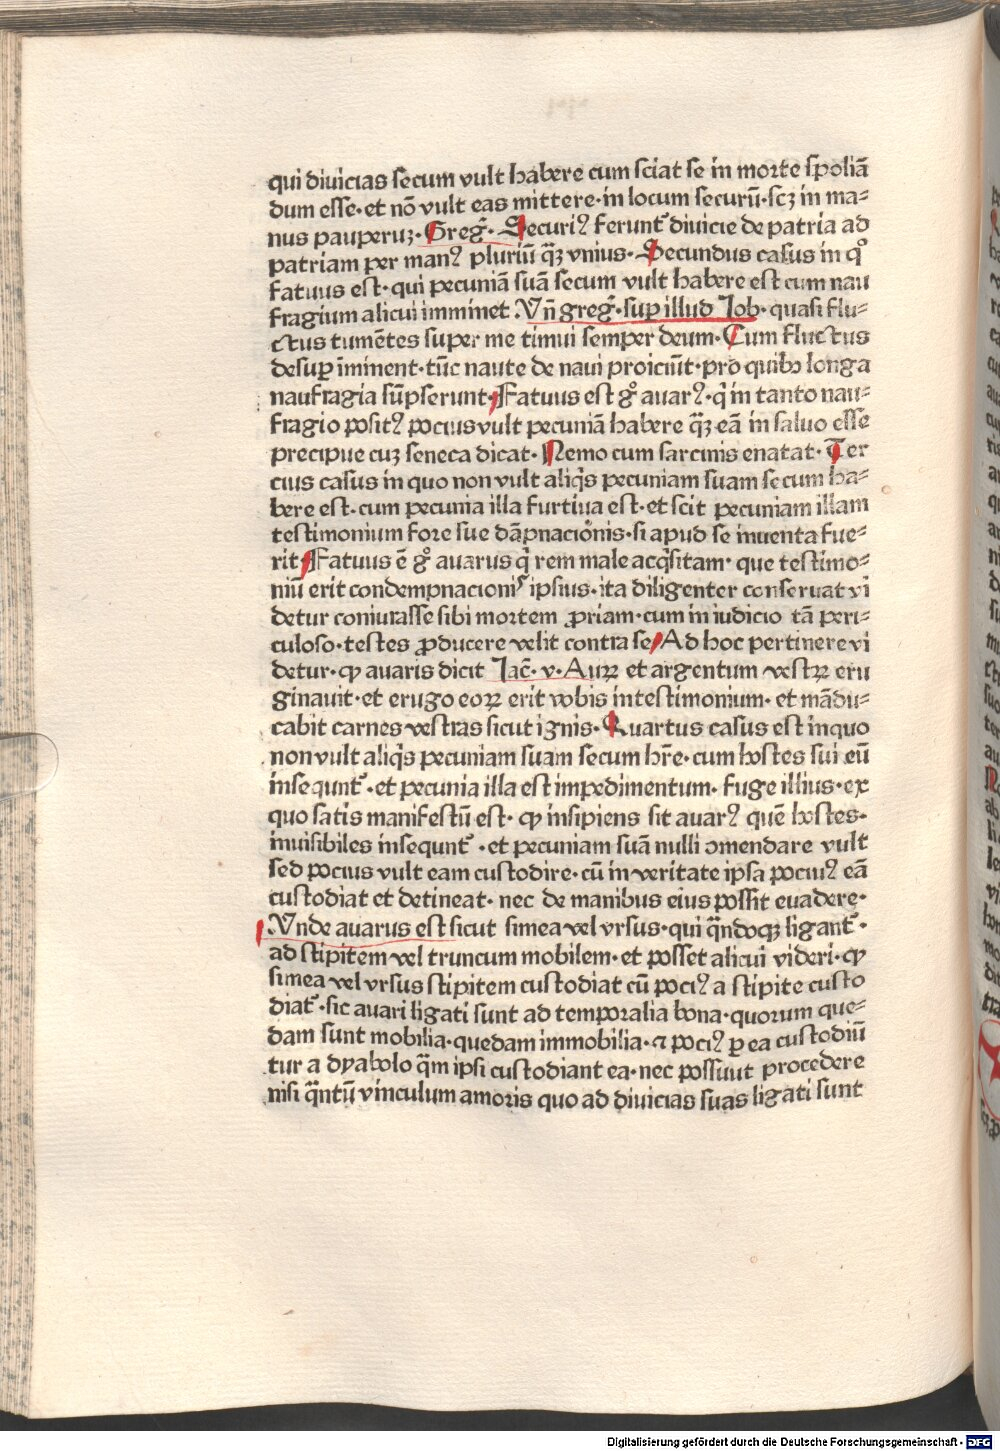 qui diuicias secum vult habere cum sciat se in morte spoliā
dum esse· et nō vult eas mittere· in locum securū· scꝫ in ma⸗
nus pauperuꝫ· Greg̃· Securiꝰ ferunt᷑ diuicie de patria ad
patriam per manꝰ pluriū qꝫ vnius· Secundus casus in qͦ
fatuus est· qui pecuniā suā secum vult habere est cum nau
fragium alicui imminet Vn̄ greg̃· sup̱ illud Iob· quasi flu⸗
ctus tumētes super me timui semper deum· Cum fluctus
desup̱ iminent· tūc naute de naui proiciūt· pro quibꝫ longa
naufragia sūpserunt· Fatuus est gͦ auarꝰ· q̇ in tanto nau⸗
fragio positꝰ pocius vult pecuniā habere qꝫ eā in saluo esse
precipue cuꝫ seneca dicat· Nemo cum sarcinis enatat· Ter
cius casus in quo non vult aliq̇s pecuniam suam secum ha⸗
bere est· cum pecunia illa furtiua est· et scit pecuniam illam
testimonium fore sue dāpnacionis· si apud se inuenta fue⸗
rit Fatuus ē gͦ auarus q̇ rem male acq̇sitam· que testimo⸗
niū erit condempnacionis ipsius· ita diligenter conseruat vi
detur coniurasse sibi mortem ꝓpriam· cum in iudicio tā peri⸗
culoso· testes ꝓducere velit contra se Ad hoc pertinere vi
detur· ꝙ auaris dicit Iac̄· v· Auꝝ et argentum vestꝝ eru
ginauit· et erugo eoꝝ erit vobis in testimonium· et mādu⸗
cabit carnes vestras sicut ignis· Quartus casus est in quo
non vult aliq̇s pecuniam suam secum hr̄e· cum hostes sui eū
insequnt᷑· et pecunia illa est impedimentum· fuge illius· ex
quo satis manifestū est· ꝙ insipiens sit auarꝰ quē hostes·
inuisibiles insequnt᷑ · et pecuniam suā nulli ɔmendare vult
sed pocius vult eam custodire· cū in veritate ipsa pociuꝰ eā
custodiat et detineat· nec de manibus eius possit euadere·
Vnde auarus est sicut simea vel vrsus· qui qn̄doqꝫ ligant᷑ ·
ad stipitem vel truncum mobilem· et posset alicui videri· ꝙ
simea vel vrsus stipitem custodiat cū pociꝰ a stipite custo
diat᷑· sic auari ligati sunt ad temporalia bona· quorum que⸗
dam sunt mobilia· quedam immobilia· ⁊ pociꝰ ꝑ ea custodiū
tur a dyabolo qm̄ ipsi custodiant ea· nec possuut procedere
nisi qntū vinculum amoris quo ad diuicias suas ligati sunt
Digitalisierung gefördert durch die Deutsche Forschungsgemeinschaft - DFG